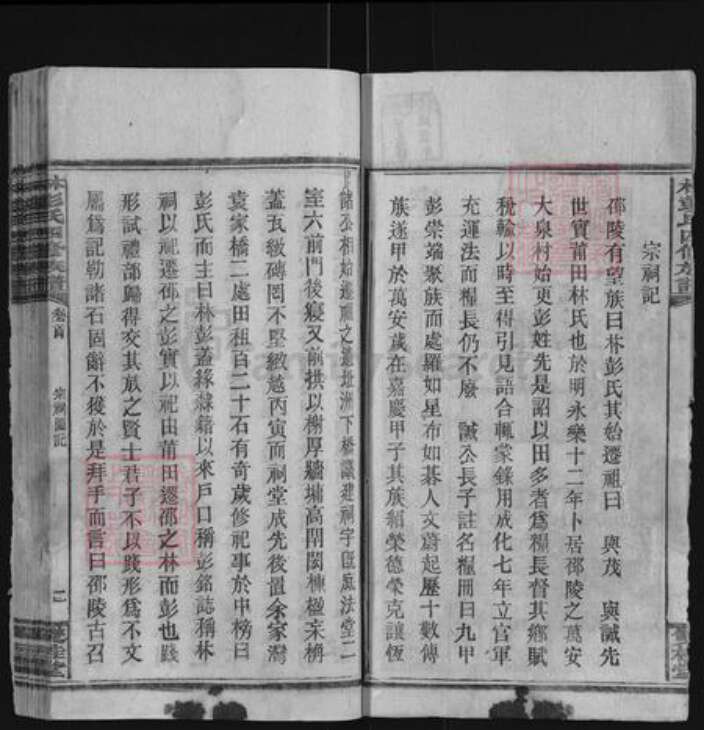 宗祠記
邵陵有望族曰林彭氏其始遷祖曰 與茂 與誠先
世實莆田林氏也於明永樂十二年卜居邵陵之萬安
大泉村始更彭姓先是詔以田多者為糧長督其鄉賦
稅輸以時至得引見語合輒蒙錄用成化七年立官軍
充運法而糧長仍不廢 誠公長子註名糧冊曰九甲
彭崇端聚族而處羅如星布如碁人文蔚起歷十數傳
族遂甲於萬安歲在嘉慶甲子其族紹榮德榮克讓恆
諸公相始遷祖之遺址洲下橋議建祠宇匠庶法堂二
室六前門後寢又前拱以榭厚牆墉高閈閎棟楹宋桷
蓋瓦緻磚罔不堅緻越丙寅而祠堂成先後置余家灣
袁家橋二處田租百二十石有奇歲修祀事於中榜曰
彭氏而主曰林彭蓋緣隸籍以來戶口稱彭銘誌稱林
祠以祀遷邵之彭實以祀由莆田遷邵之林而彭也踐
形試禮部歸得交其族之賢士君子不以踐形為不文
屬為記勒諸石固辭不獲於是拜手而言曰邵陵古召
林彭氏四修族譜
卷首
宗祠圖記
二